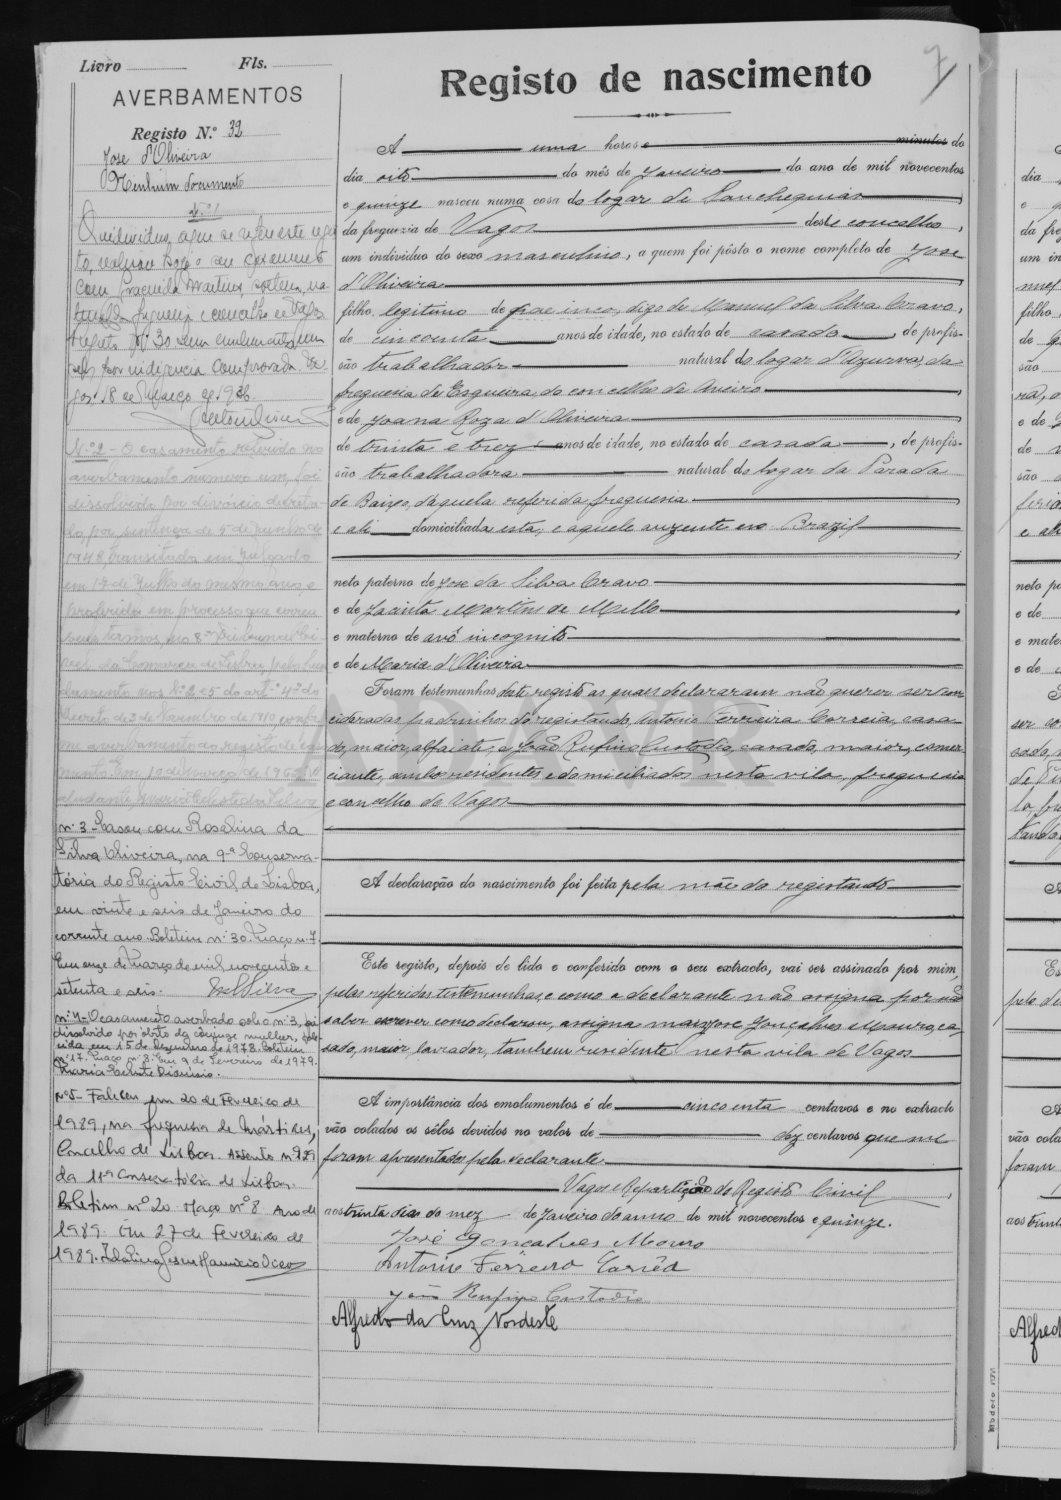 Livro Fls.
AVERBAMENTOS
Registo N.º 32
Jose d'Oliveira
Nenhum documento
N.º 1
O individuo a que se refere este regis
to, realisou hoje o seu casamento
com Gracinda Martins, solteira, na
tural da freguesia e concelho de Vagos
registo Nº 30 sem emolumentos nem
selos por indigencia comprovada. Va
gos. 18 de Março de 1936.
N.º 2 - O casamento referido no
averbamento número um, foi
dissolvido por divórcio decreta-
do por sentença de 5 de Junho de
1948, transitada em julgado
em 17 de Julho do mesmo ano, e
proferida em processo que correu
seus termos, no 8º Tribunal Ci
vel da Comarca de Lisboa, pelo fun
damento nos Nos 2 e 5 do artº 4º do
decreto de 3 de Novembro de 1910, confor
me averbamento ao registo de casa
mento. Em 10 de Março de 196
n.º 3 - Casou com Rosalina da
Silva Oliveira, na 9.ª Conserva-
tória do Registo Civil de Lisboa,
em vinte e seis de Janeiro do
corrente ano. Boletim n.º 30. Maço n.º 7.
Em onze de Março de mil novecentos e
setenta e seis. Silva
n.º 4 - O casamento averbado sob o n.º 3, foi
dissolvido por óbito da cônjuge mulher, fale-
cida em 15 de Dezembro de 1978. Boletim
n.º 17. Maço n.º 3. Em 9 de Fevereiro de 1979.
Maria Celeste Dionísio.
nº5 - Faleceu em 20 de Fevereiro de
1989, na freguesia de Mártires,
Concelho de Lisboa. Assento nº 129
da 11ª Conservatória de Lisboa.
Boletim nº 20 Maço nº 8 Ano de
1989. Em 27 de Fevereiro de
1989.
7
Registo de nascimento
A uma horas e minutos do
dia oito do mês de Janeiro do ano de mil novecentos
e quinze nasceu numa casa do logar de Sanchequias
da freguezia de Vagos deste concelho,
um individuo do sexo masculino, a quem foi pôsto o nome completo de Jose
d'Oliveira
filho legitimo de pae inco, digo de Manuel da Silva Cravo,
de cincoenta anos de idade, no estado de casado, de profis-
são trabalhador natural do logar d'Azurva, da
freguesia de Esgueira, do concelho de Aveiro
e de Joana Roza d'Oliveira
de trinta e trez anos de idade, no estado de casada, de profis-
são trabalhadora natural do logar da Parada
de Baixo, daquela referida freguesia
e ali domiciliada esta, e aquele auzente no Brazil
neto paterno de Jose da Silva Cravo
e de Jacinta Martins de Mello
e materno de avô incognito
e de Maria d'Oliveira
Foram testemunhas deste registo as quais declararam não querer ser con
cideradas padrinhos do registando, Antonio Ferreira Correia, casa-
do, maior, alfaiate, e João Rufino Custodio, casado, maior, comer
ciante, ambos residentes e domiciliados nesta vila, freguesia
e concelho de Vagos
A declaração do nascimento foi feita pela mãe do registando
Este registo, depois de lido e conferido com o seu extracto, vai ser assinado por mim,
pelas referidas testemunhas, e como a declarante não assigna por não
saber escrever como declarou, assigna Jose Gonçalves Mouro, ca
sado, maior, lavrador, tambem residente nesta vila de Vagos
A importância dos emolumentos é de cincoenta centavos e no extracto
vão colados os sêlos devidos no valor de dez centavos que me
foram apresentados pela declarante
Vagos e Repartição do Registo Civil
aos trinta dias do mez de Janeiro do anno de mil novecentos e quinze.
José Gonçalves Mouro
Antonio Ferreira Corrêa
João Rufino Custodio
Alfredo da Cruz Nordeste
ADAVR